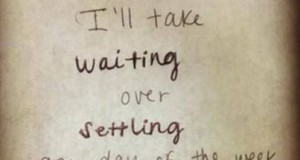 I'll take
waiting
over
settling
any day of the week